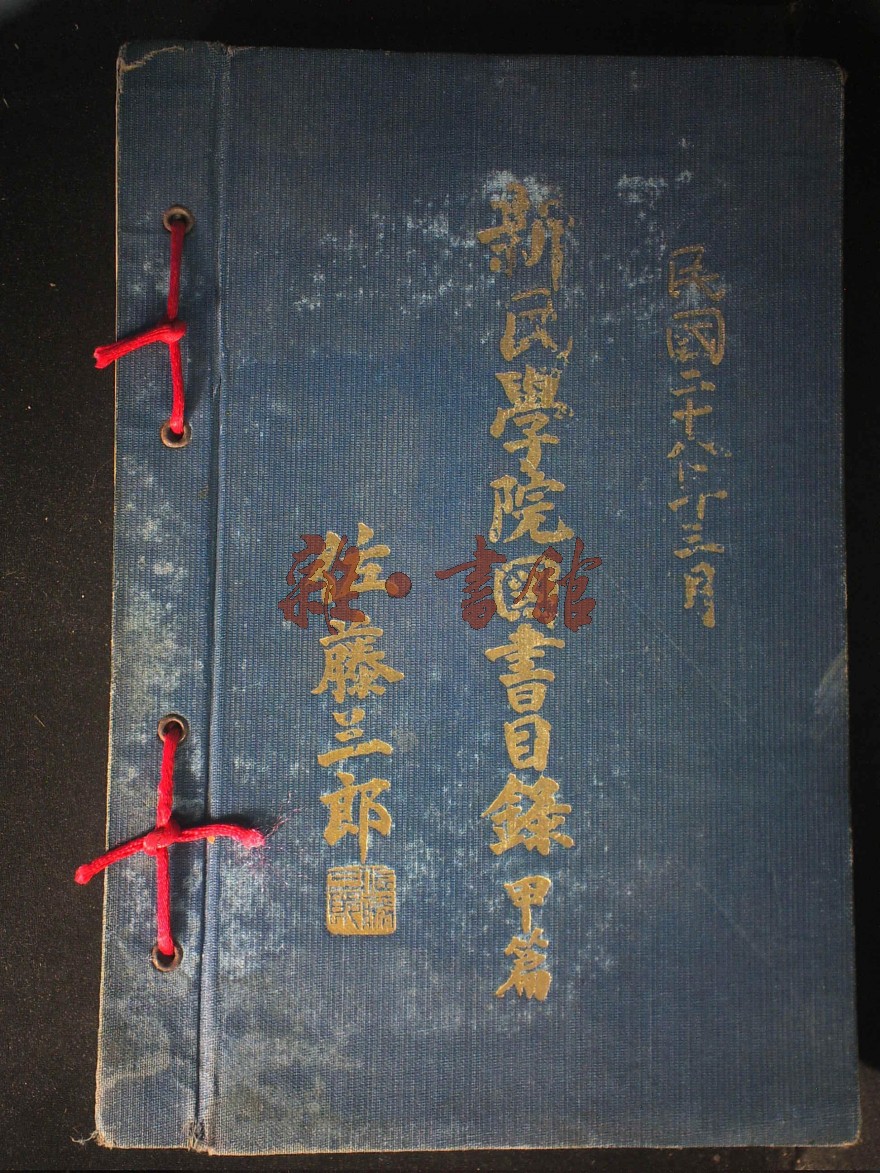 民國二十八年三月
新民學院圖書目錄 甲篇
佐藤三郎
雜·書館